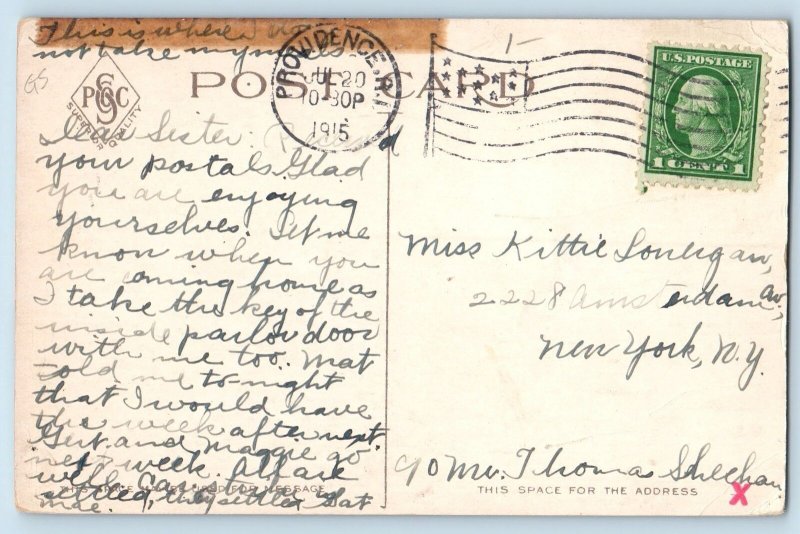 This is where I
not take my meals
POST CARD
GS
S
P C
SUPERIOR QUALITY
PROVIDENCE, R.I.
JUL 20
10-30P
1915
U.S. POSTAGE
1 CENT 1
Dear Sister:
your postals. Glad
you are enjoying
yourselves. Let me
know when you
are coming home as
I take the key of the
inside parlor door
with me too. Mat
told me to-night
that I would have
the week after next.
Gert. and Maggie go
next week. All are
well.
settled, they settled that
Mae.
THIS SPACE FOR MESSAGE
Miss Kittie Lonergan,
2228 Amsterdam av,
New York, N.Y.
c/o Mr. Thomas Sheehan
THIS SPACE FOR THE ADDRESS
X